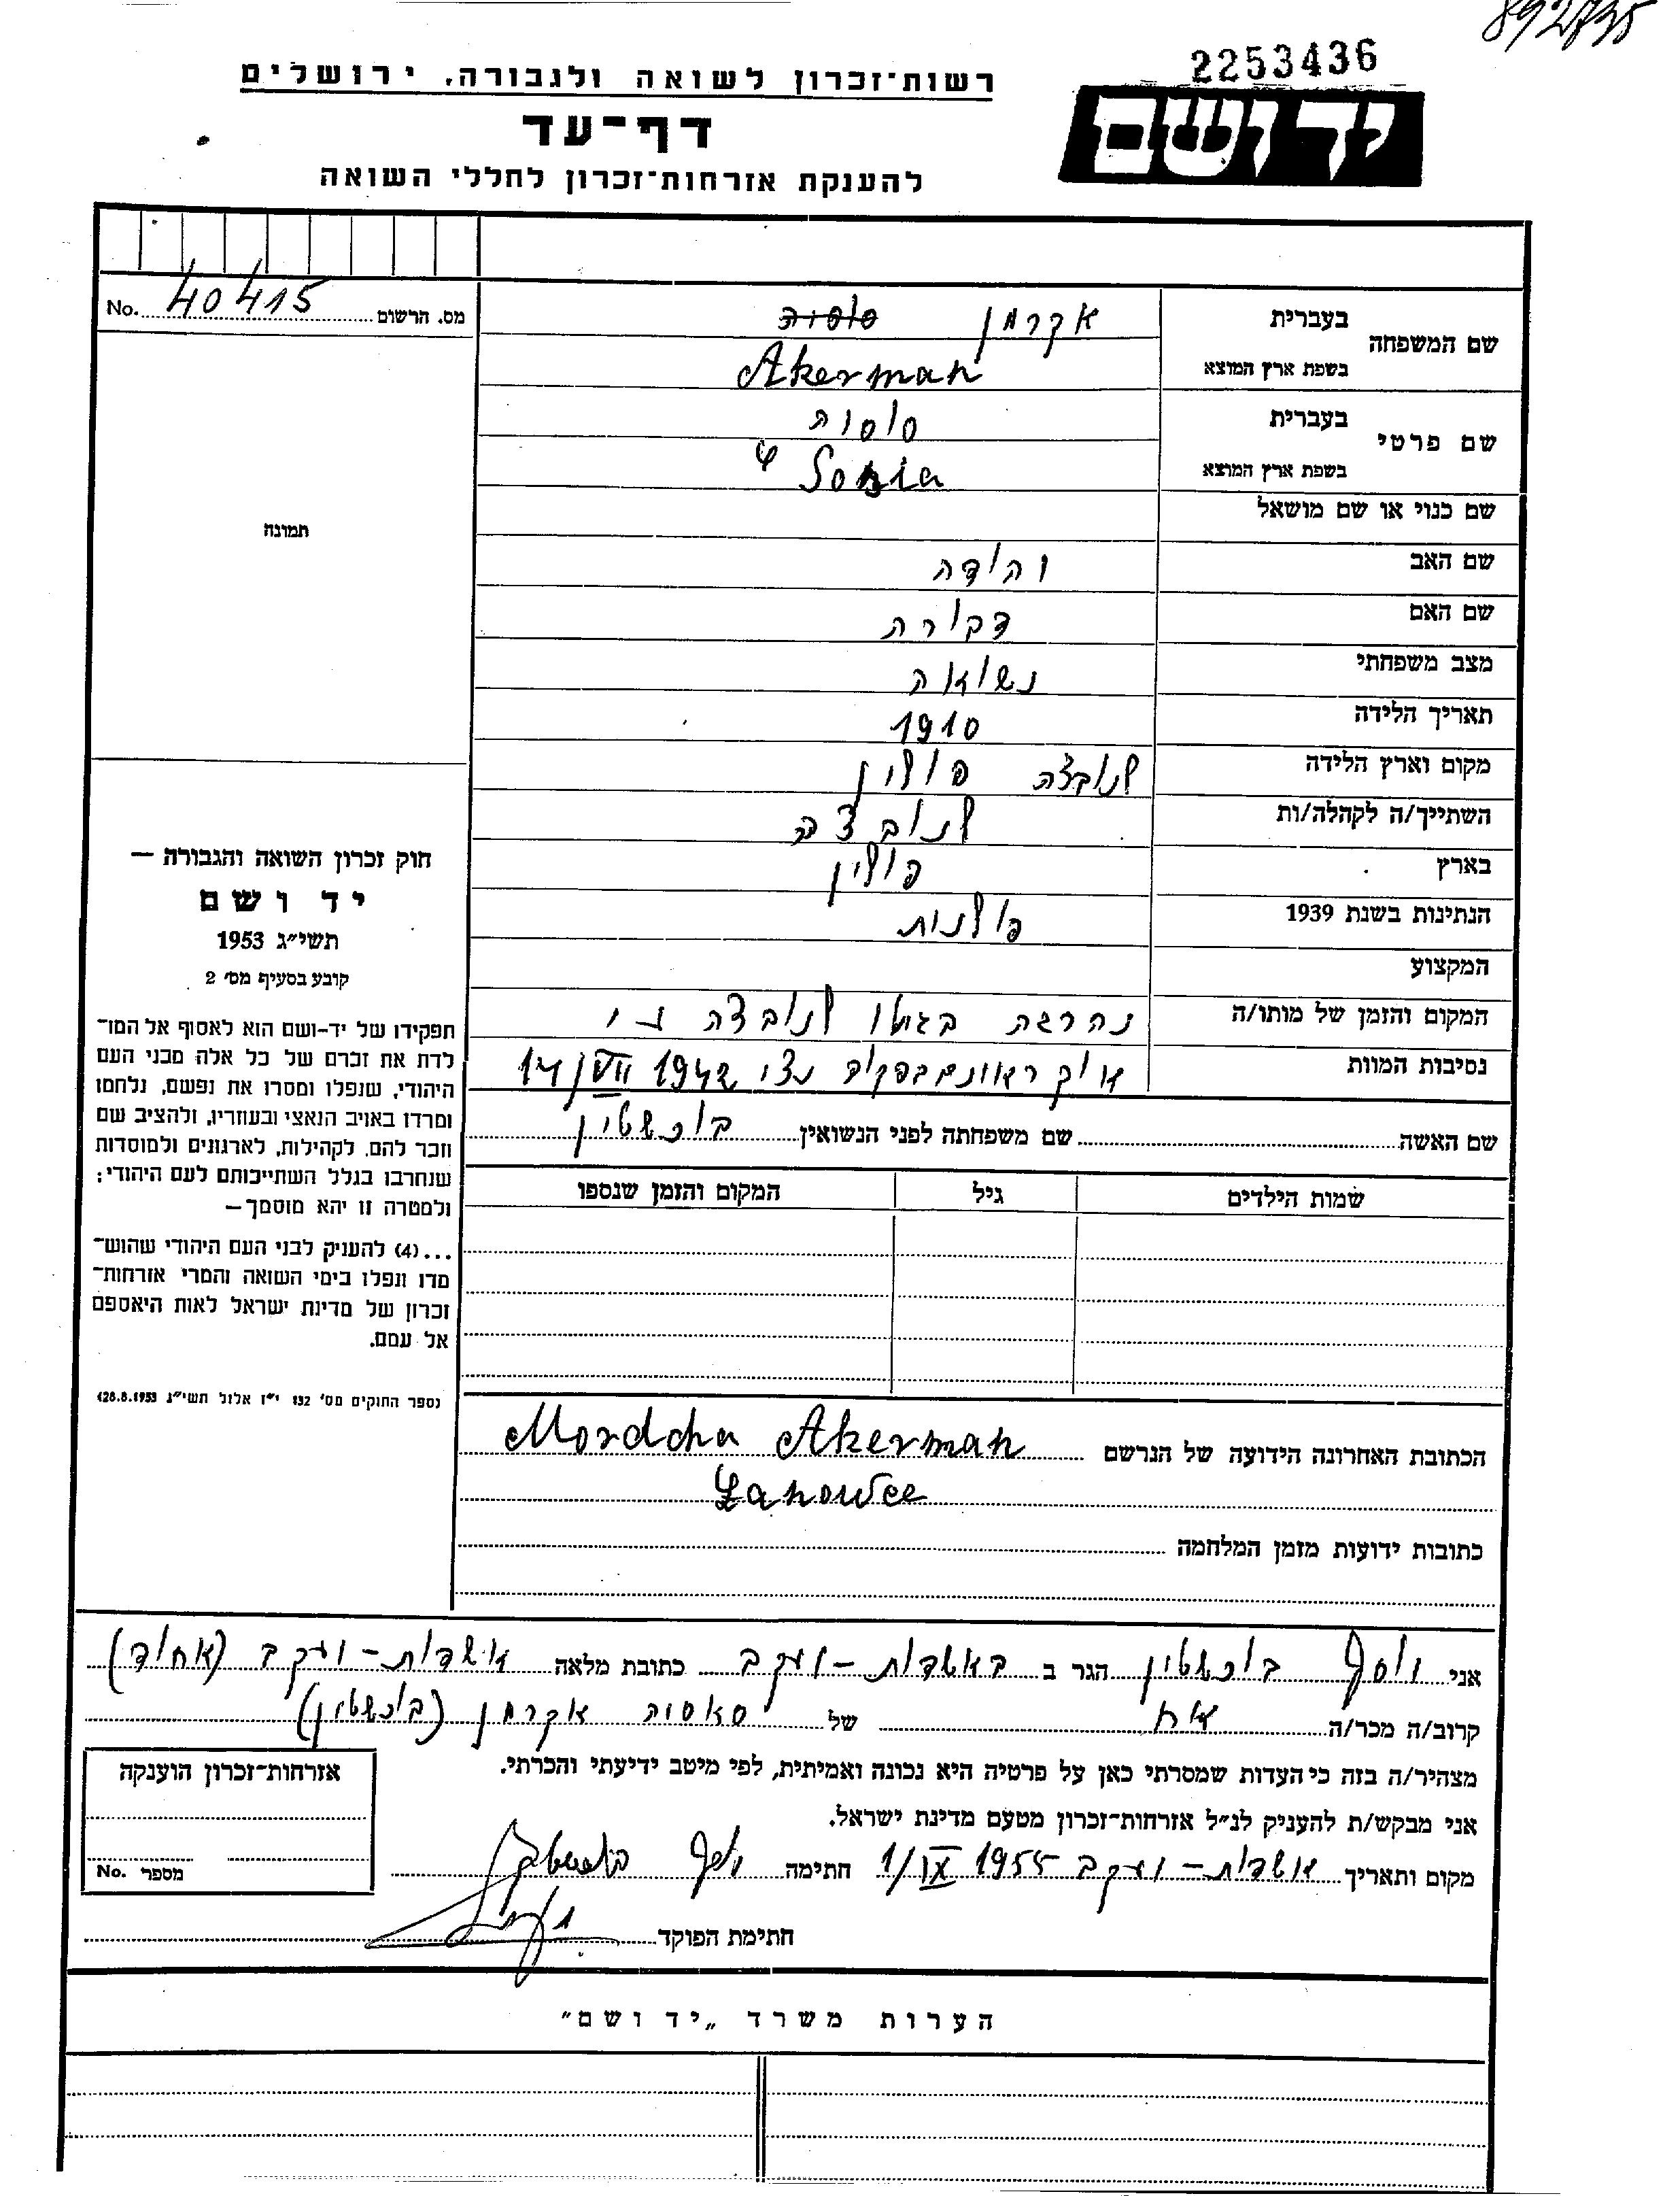 892735
2253436
רשות־זכרון לשואה ולגבורה, ירושלים
יד ושם
דף־עד
להענקת אזרחות־זכרון לחללי השואה
מס. הרשום 40415 No.
שם המשפחה
בעברית אקרמן
בשפת ארץ המוצא Akerman
שם פרטי
בעברית סוסיה
בשפת ארץ המוצא Sosia
שם כנוי או שם מושאל
שם האב יהודה
שם האם דבורה
מצב משפחתי נשואה
תאריך הלידה 1910
מקום וארץ הלידה לנוביצה פולין
השתייך/ה לקהלה/ות לנוביצה
בארץ פולין
הנתינות בשנת 1939 פולנית
המקצוע
המקום והזמן של מותו/ה נהרגה בגיטו לנוביצה
נסיבות המוות 14/VIII 1942
שם האשה שם משפחתה לפני הנשואין בוכשטין
שמות הילדים גיל המקום והזמן שנספו
הכתובת האחרונה הידועה של הנרשם Mordcha Akerman
Łanowce
כתובות ידועות מזמן המלחמה
תמונה
חוק זכרון השואה והגבורה —
יד ושם
תשי״ג 1953
קובע בסעיף מס׳ 2
תפקידו של יד-ושם הוא לאסוף אל המו־
לדת את זכרם של כל אלה מבני העם
היהודי, שנפלו ומסרו את נפשם, נלחמו
ומרדו באויב הנאצי ובעוזריו, ולהציב שם
וזכר להם, לקהילות, לארגונים ולמוסדות
שנחרבו בגלל השתייכותם לעם היהודי;
ולמטרה זו יהא מוסמך—
...(4) להעניק לבני העם היהודי שהוש־
מדו ונפלו בימי השואה והמרי אזרחות־
זכרון של מדינת ישראל לאות היאספם
אל עמם.
(ספר החוקים מס׳ 132 י״ז אלול תשי״ג 28.8.1953)
אני יוסף בוכשטין הגר ב באשדות-יעקב כתובת מלאה אשדות-יעקב (אחוד)
קרוב/ה מכר/ה אח של סאסיה אקרמן (בוכשטין)
מצהיר/ה בזה כי העדות שמסרתי כאן על פרטיה היא נכונה ואמיתית, לפי מיטב ידיעתי והכרתי.
אני מבקש/ת להעניק לנ״ל אזרחות־זכרון מטעם מדינת ישראל.
מקום ותאריך אשדות-יעקב 1/IX 1955 חתימה יוסף בוכשטין
חתימת הפוקד
אזרחות־זכרון הוענקה
מספר No.
הערות משרד „יד ושם״